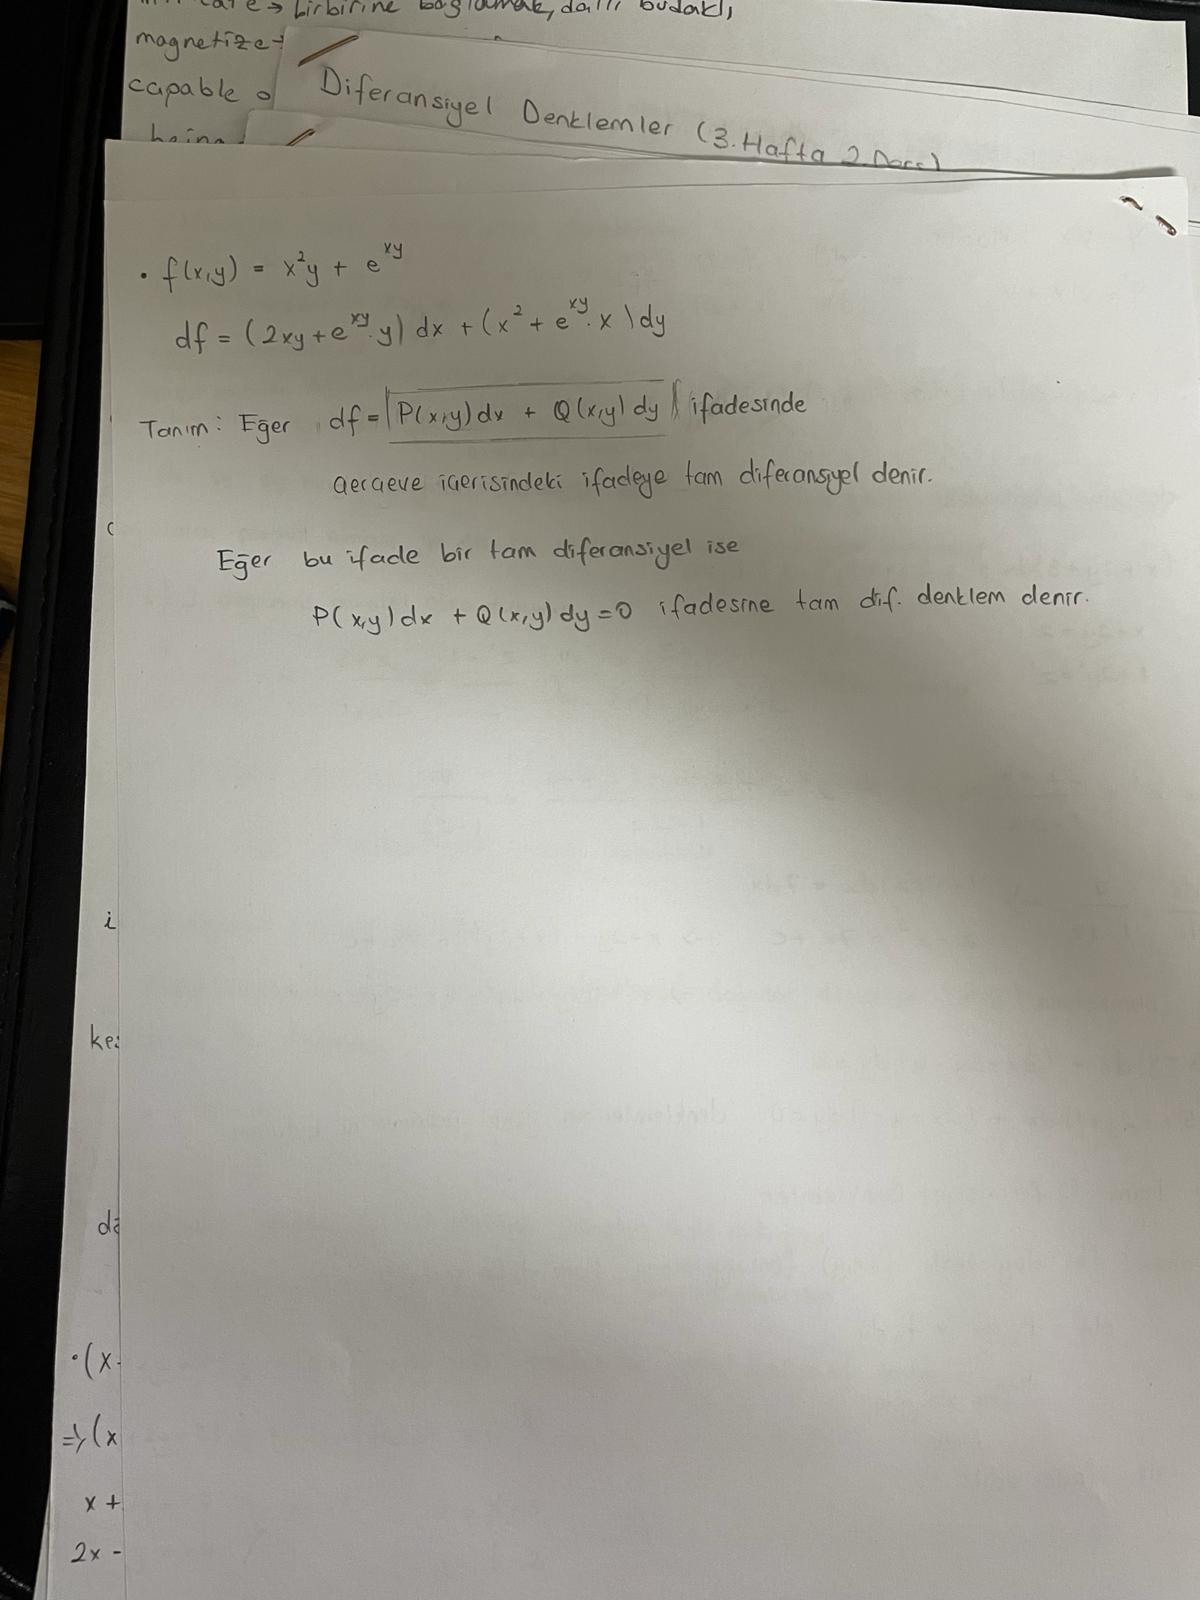 birbirine bağlamak, dallı budaklı
magnetize→
capable o
being
Diferansiyel Denklemler (3. Hafta 2. Ders)
• f(x,y) = x²y + e^xy
df = (2xy + e^xy. y) dx + (x² + e^xy. x) dy
Tanım: Eğer df = P(x,y) dx + Q(x,y) dy ifadesinde
çerçeve içerisindeki ifadeye tam diferansiyel denir.
Eğer bu ifade bir tam diferansiyel ise
P(x,y) dx + Q(x,y) dy = 0 ifadesine tam dif. denklem denir.
i
ke
da
• (x
⇒ (x
x +
2x -